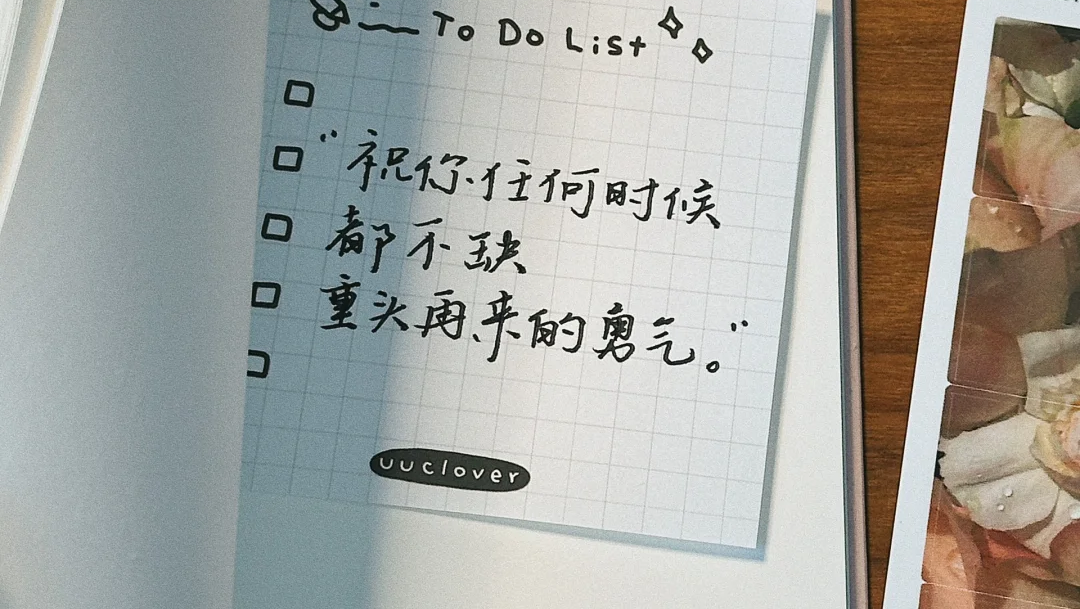 To Do List
“祝你任何时候
都不缺
重头再来的勇气。”
uuclover